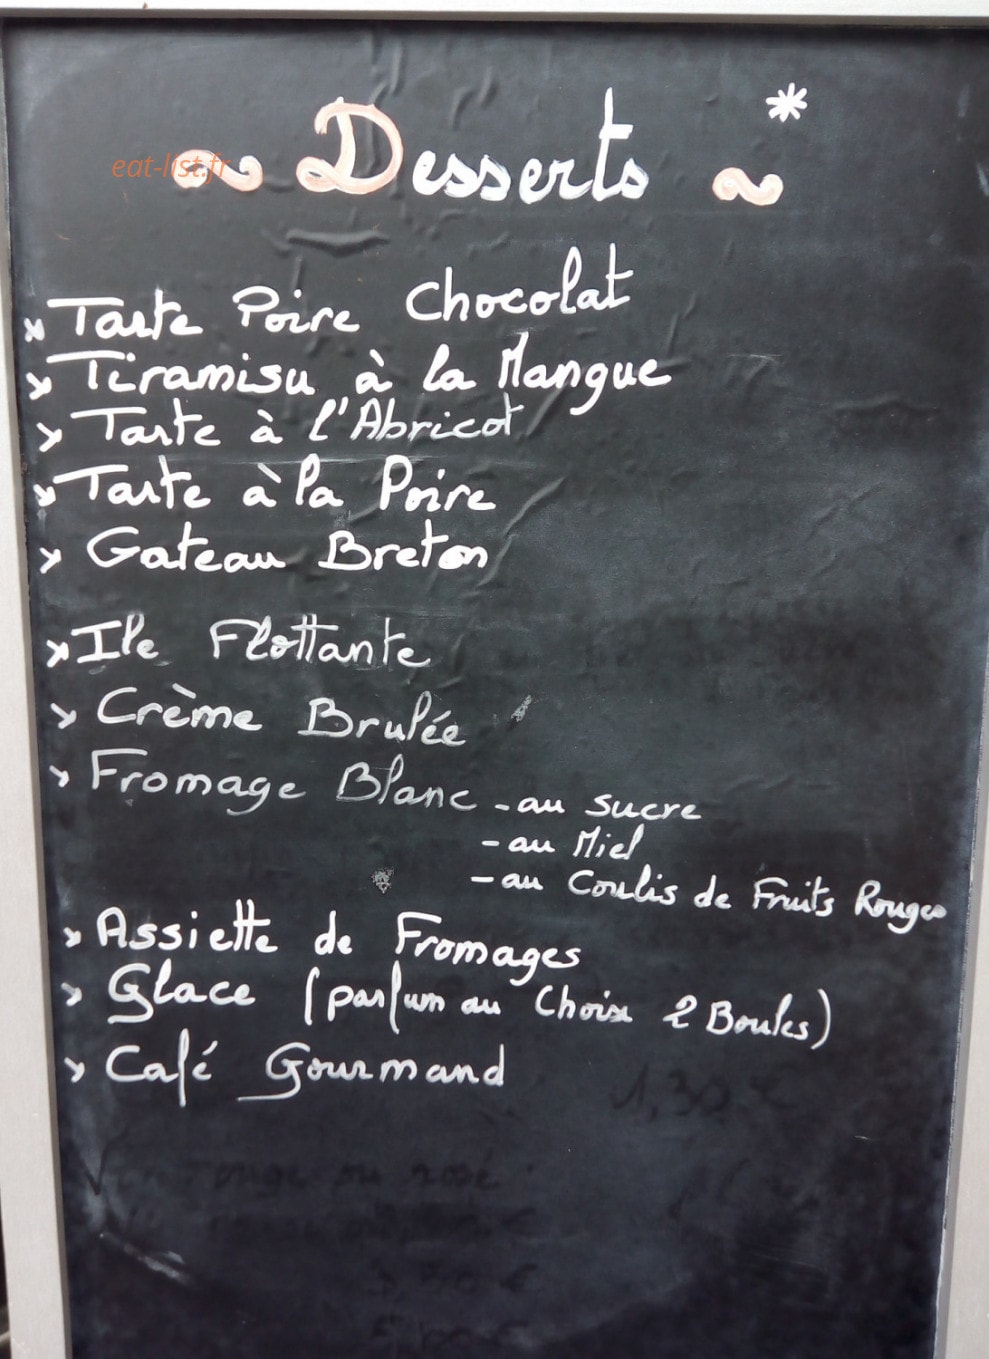 eat-list.fr
~ Desserts ~ *
> Tarte Poire Chocolat
> Tiramisu à la Mangue
> Tarte à l'Abricot
> Tarte à la Poire
> Gateau Breton
> Ile Flottante
> Crème Brulée
> Fromage Blanc - au sucre
- au Miel
- au Coulis de Fruits Rouges
> Assiette de Fromages
> Glace (parfum au Choix 2 Boules)
> Café Gourmand
1,30 €
rouge ou rosé